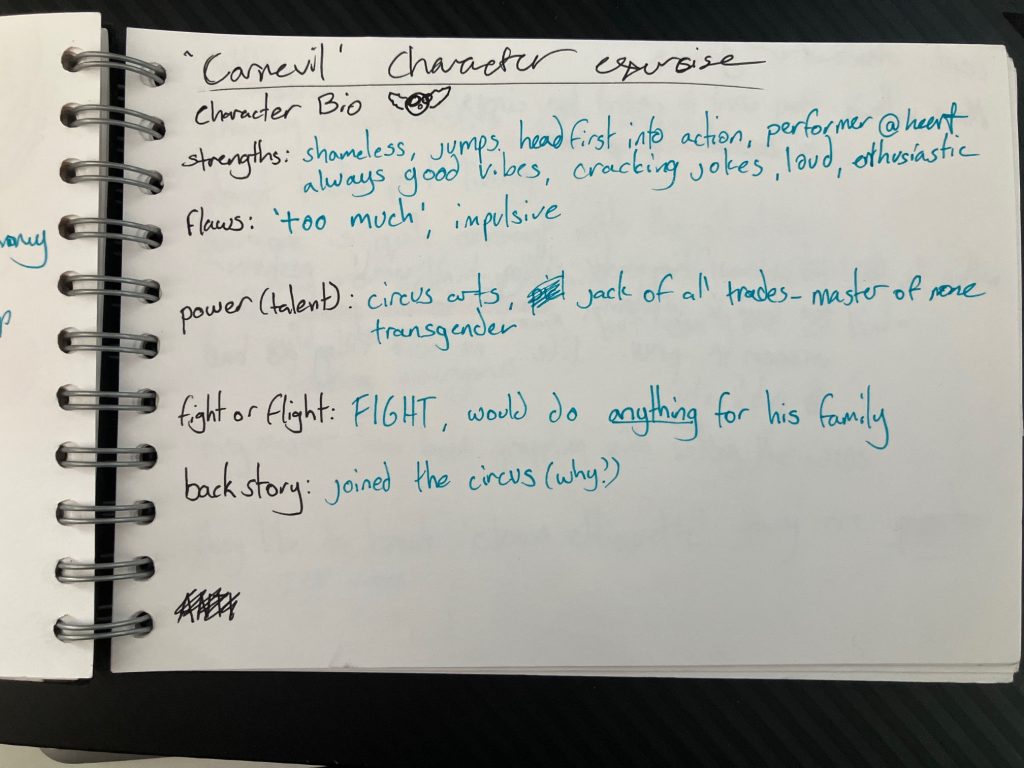 'Carnevil' Character exercise
Character Bio
strengths: shameless, jumps headfirst into action, performer @ heart
always good vibes, cracking jokes, loud, enthusiastic
flaws: 'too much', impulsive
power (talent): circus arts, jack of all trades - master of none
transgender
fight or flight: FIGHT, would do anything for his family
backstory: joined the circus (why?)